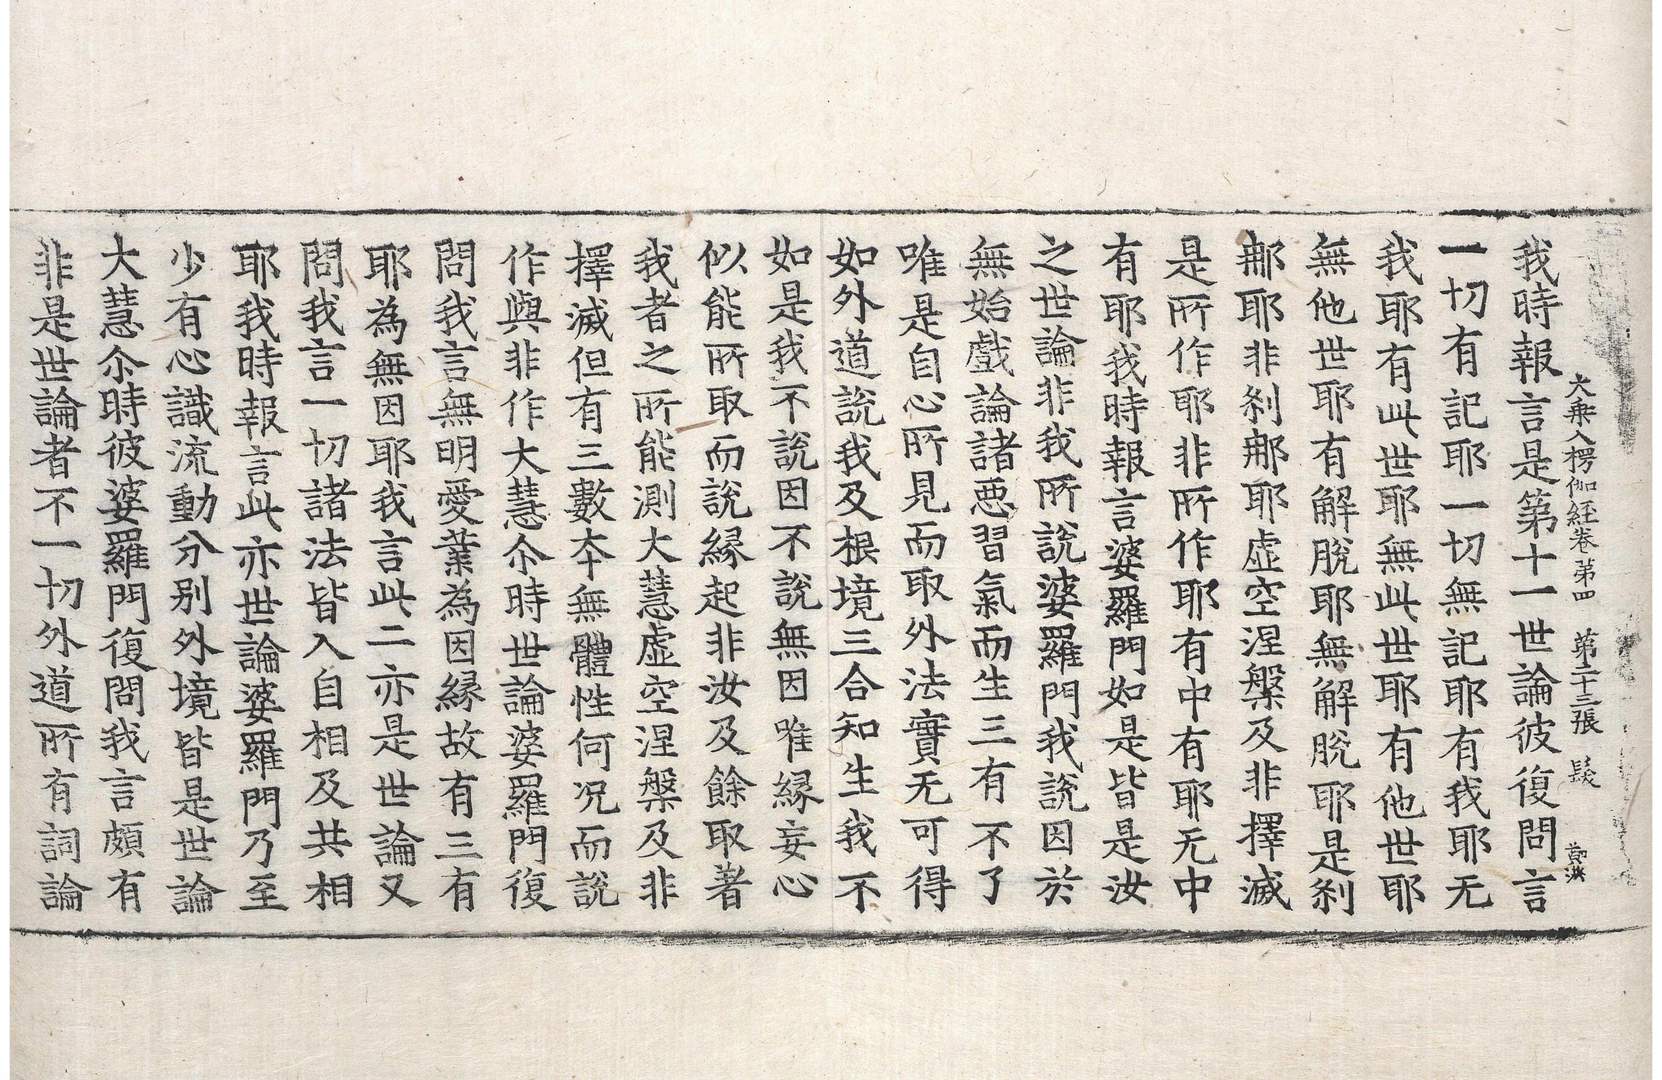 大乗入楞伽経卷第四　第二十三張　髮
我時報言是第十一世論彼復問言
一切有記耶一切無記耶有我耶无
我耶有此世耶無此世耶有他世耶
無他世耶有解脫耶無解脫耶是刹
那耶非刹那耶虛空涅槃及非擇滅
是所作耶非所作耶有中有耶无中
有耶我時報言婆羅門如是皆是汝
之世論非我所說婆羅門我說因於
無始戲論諸惡習氣而生三有不了
唯是自心所見而取外法實无可得
如外道說我及根境三合知生我不
如是我不說因不說無因唯縁妄心
似能所取而說縁起非汝及餘取著
我者之所能測大慧虛空涅槃及非
擇滅但有三數夲無體性何况而說
作與非作大慧尒時世論婆羅門復
問我言無明愛業為因縁故有三有
耶為無因耶我言此二亦是世論又
問我言一切諸法皆入自相及共相
耶我時報言此亦世論婆羅門乃至
少有心識流動分别外境皆是世論
大慧尒時彼婆羅門復問我言頗有
非是世論者不一切外道所有詞論